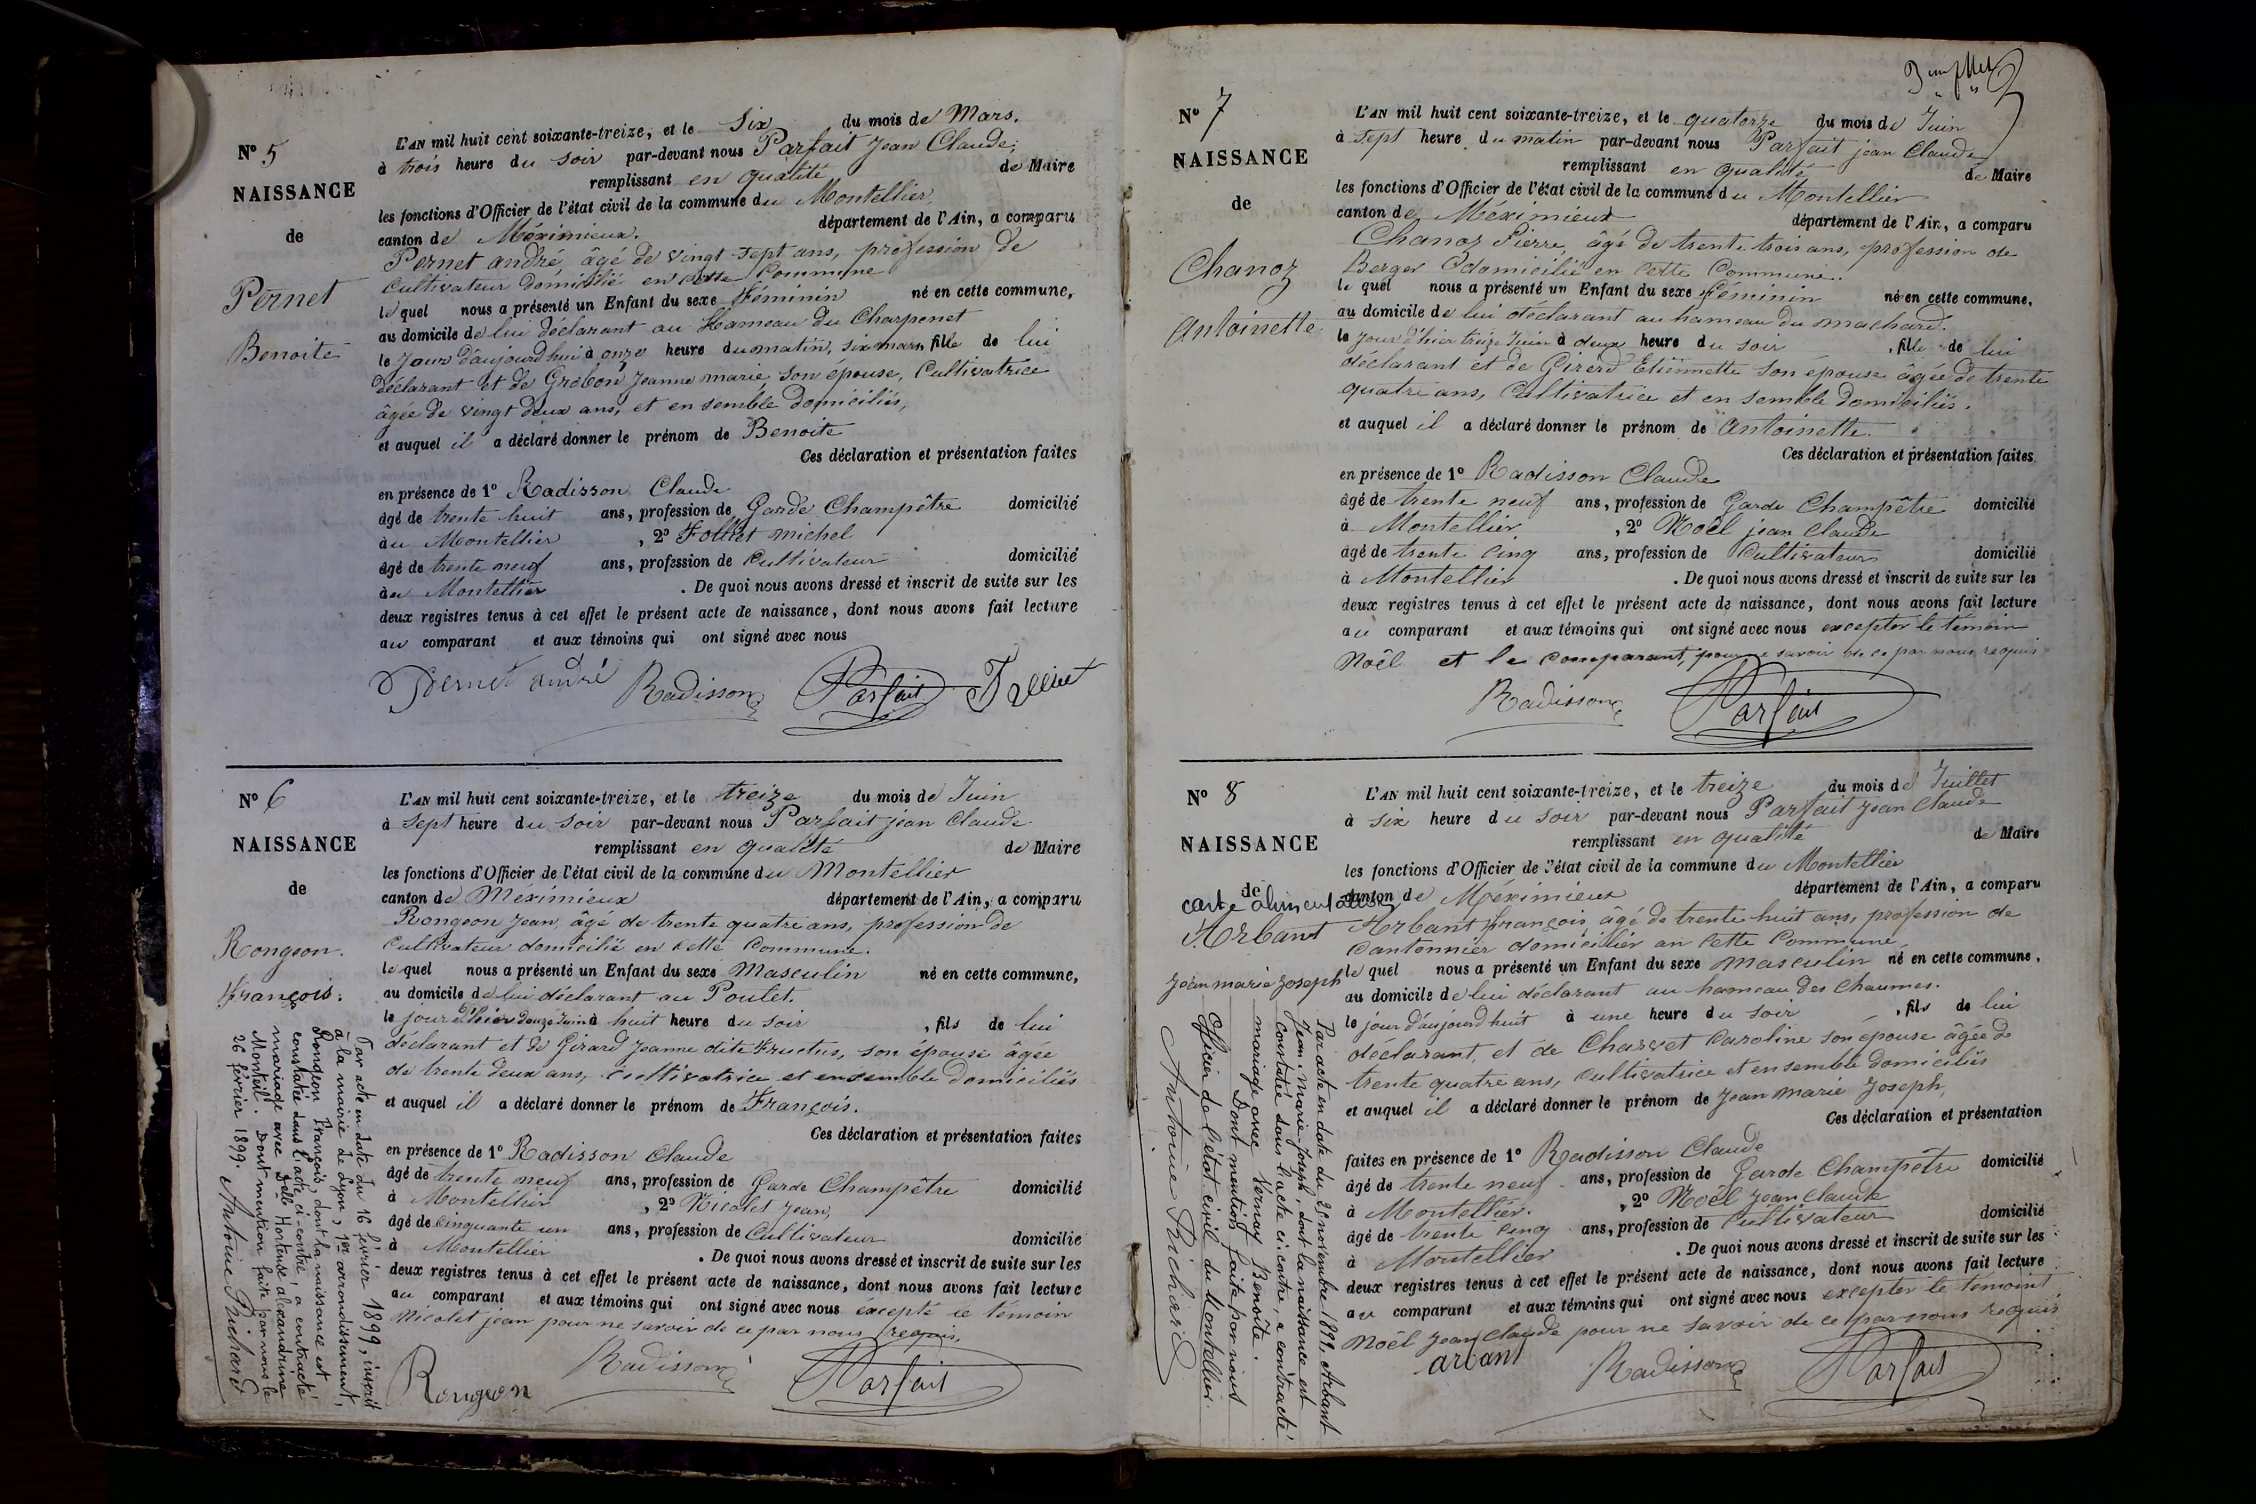 Nº 5
NAISSANCE
de
Pernet
Benoite
L'AN mil huit cent soixante-treize, et le Six du mois de Mars.
à trois heure du soir par-devant nous Parfait Jean Claude,
remplissant en qualité de Maire
les fonctions d'Officier de l'état civil de la commune du Montellier,
canton de Méximieux. département de l'Ain, a comparu
Pernet andré, âgé de vingt-sept ans, profession de
Cultivateur domicilié en cette Commune
le quel nous a présenté un Enfant du sexe Féminin né en cette commune,
au domicile de lui déclarant au Hameau du Charpenet
le jour d'aujourd'hui à onze heure du matin, six mars, fille de lui
déclarant et de Grobon Jeanne marie, son epouse, Cultivatrice
âgée de vingt deux ans, et en semble domiciliés,
et auquel il a déclaré donner le prénom de Benoite
Ces déclaration et présentation faites
en présence de 1º Radisson Claude
âgé de trente huit ans, profession de Garde Champêtre domicilié
à au Montellier , 2º Folliet michel
âgé de trente neuf ans, profession de Cultivateur domicilié
à au Montellier . De quoi nous avons dressé et inscrit de suite sur les
deux registres tenus à cet effet le présent acte de naissance, dont nous avons fait lecture
au comparant et aux témoins qui ont signé avec nous
Pernet andré Radisson Parfait Folliet
Nº 6
NAISSANCE
de
Rongeon.
François.
L'AN mil huit cent soixante-treize, et le treize du mois de Juin
à Sept heure du soir par-devant nous Parfait jean Claude
remplissant en qualité de Maire
les fonctions d'Officier de l'état civil de la commune du Montellier
canton de Méximieux département de l'Ain, a comparu
Rongeon Jean, âgé de trente quatre ans, profession de
Cultivateur domicilié en cette Commune.
le quel nous a présenté un Enfant du sexe Masculin né en cette commune,
au domicile de lui déclarant au Poulet.
le jour d'hier douze Juin à huit heure du soir , fils de lui
déclarant et de Girard Jeanne dite Fructus, son épouse âgée
de trente deux ans, Cultivatrice et ensemble domiciliés
et auquel il a déclaré donner le prénom de François.
Ces déclaration et présentation faites
en présence de 1º Radisson Claude
âgé de trente neuf ans, profession de Garde Champêtre domicilié
à Montellier , 2º Nicolet Jean,
âgé de cinquante un ans, profession de Cultivateur domicilié
à Montellier . De quoi nous avons dressé et inscrit de suite sur les
deux registres tenus à cet effet le présent acte de naissance, dont nous avons fait lecture
au comparant et aux témoins qui ont signé avec nous excepté ce témoin
Nicolet jean pour ne savoir de ce par nous requis,
Rongeon Radisson Parfait
Par acte en date du 16 février 1899, inscrit
à la mairie de Lyon, 1er arrondissement,
Rongeon François, dont la naissance est
constatée dans l'acte ci-contre, a contracté
mariage avec Delle Hortense alexandrine
Monteil. Dont mention faite par nous le
26 février 1899. Antoine Richard
Nº 7
NAISSANCE
de
Chanoz
Antoinette
L'AN mil huit cent soixante-treize, et le quatorze du mois de Juin
à sept heure du matin par-devant nous Parfait jean Claude
remplissant en qualité de Maire
les fonctions d'Officier de l'état civil de la commune du Montellier
canton de Méximieux département de l'Ain, a comparu
Chanoz Pierre, âgé de trente trois ans, profession de
Berger domicilié en cette Commune.
le quel nous a présenté un Enfant du sexe Féminin né en cette commune,
au domicile de lui déclarant au hameau du machard.
le jour d'hier treize Juin à deux heure du soir , fille de lui
déclarant et de Girerd Etiennette son épouse âgée de trente
quatre ans, Cultivatrice et en semble domiciliés.
et auquel il a déclaré donner le prénom de Antoinette
Ces déclaration et présentation faites
en présence de 1º Radisson Claude
âgé de trente neuf ans, profession de Garde Champêtre domicilié
à Montellier , 2º Noël jean Claude
âgé de trente cinq ans, profession de Cultivateur domicilié
à Montellier . De quoi nous avons dressé et inscrit de suite sur les
deux registres tenus à cet effet le présent acte de naissance, dont nous avons fait lecture
au comparant et aux témoins qui ont signé avec nous excepter le témoin
Noël et le comparant, pour ne savoir de ce par nous requis
Radisson Parfait
Nº 8
NAISSANCE
de
carte alimentation
Arbant
Jean marie Joseph
L'AN mil huit cent soixante-treize, et le treize du mois de Juillet
à six heure du soir par-devant nous Parfait Jean Claude
remplissant en qualité de Maire
les fonctions d'Officier de l'état civil de la commune du Montellier
canton de Méximieux département de l'Ain, a comparu
Arbant François, âgé de trente huit ans, profession de
Cantonnier domicilier an cette Commune,
le quel nous a présenté un Enfant du sexe masculin né en cette commune,
au domicile de lui déclarant au hameau des Chaumes.
le jour d'aujourd'huit à une heure du soir , fils de lui
déclarant, et de Charvet Caroline son épouse âgée de
trente quatre ans, Cultivatrice et en semble domiciliés
et auquel il a déclaré donner le prénom de Jean marie Joseph,
Ces déclaration et présentation
faites en présence de 1º Radisson Claude
âgé de trente neuf ans, profession de Garde Champêtre domicilié
à Montellier. , 2º Noël Jean Claude
âgé de trente cinq ans, profession de Cultivateur domicilié
à Montellier . De quoi nous avons dressé et inscrit de suite sur les
deux registres tenus à cet effet le présent acte de naissance, dont nous avons fait lecture
au comparant et aux témoins qui ont signé avec nous excepter le témoint
Noël Jean Claude pour ne savoir de ce par nous requis
arbant Radisson Parfait
Par acte en date du novembre 1898, Arbant
Jean-Marie-Joseph, dont la naissance est
constatée dans l'acte ci-contre, a contracté
mariage avec Vernay Benoîte.
Dont mention faite par nous
Officier de l'état-civil du Montellier.
Antoine Richard